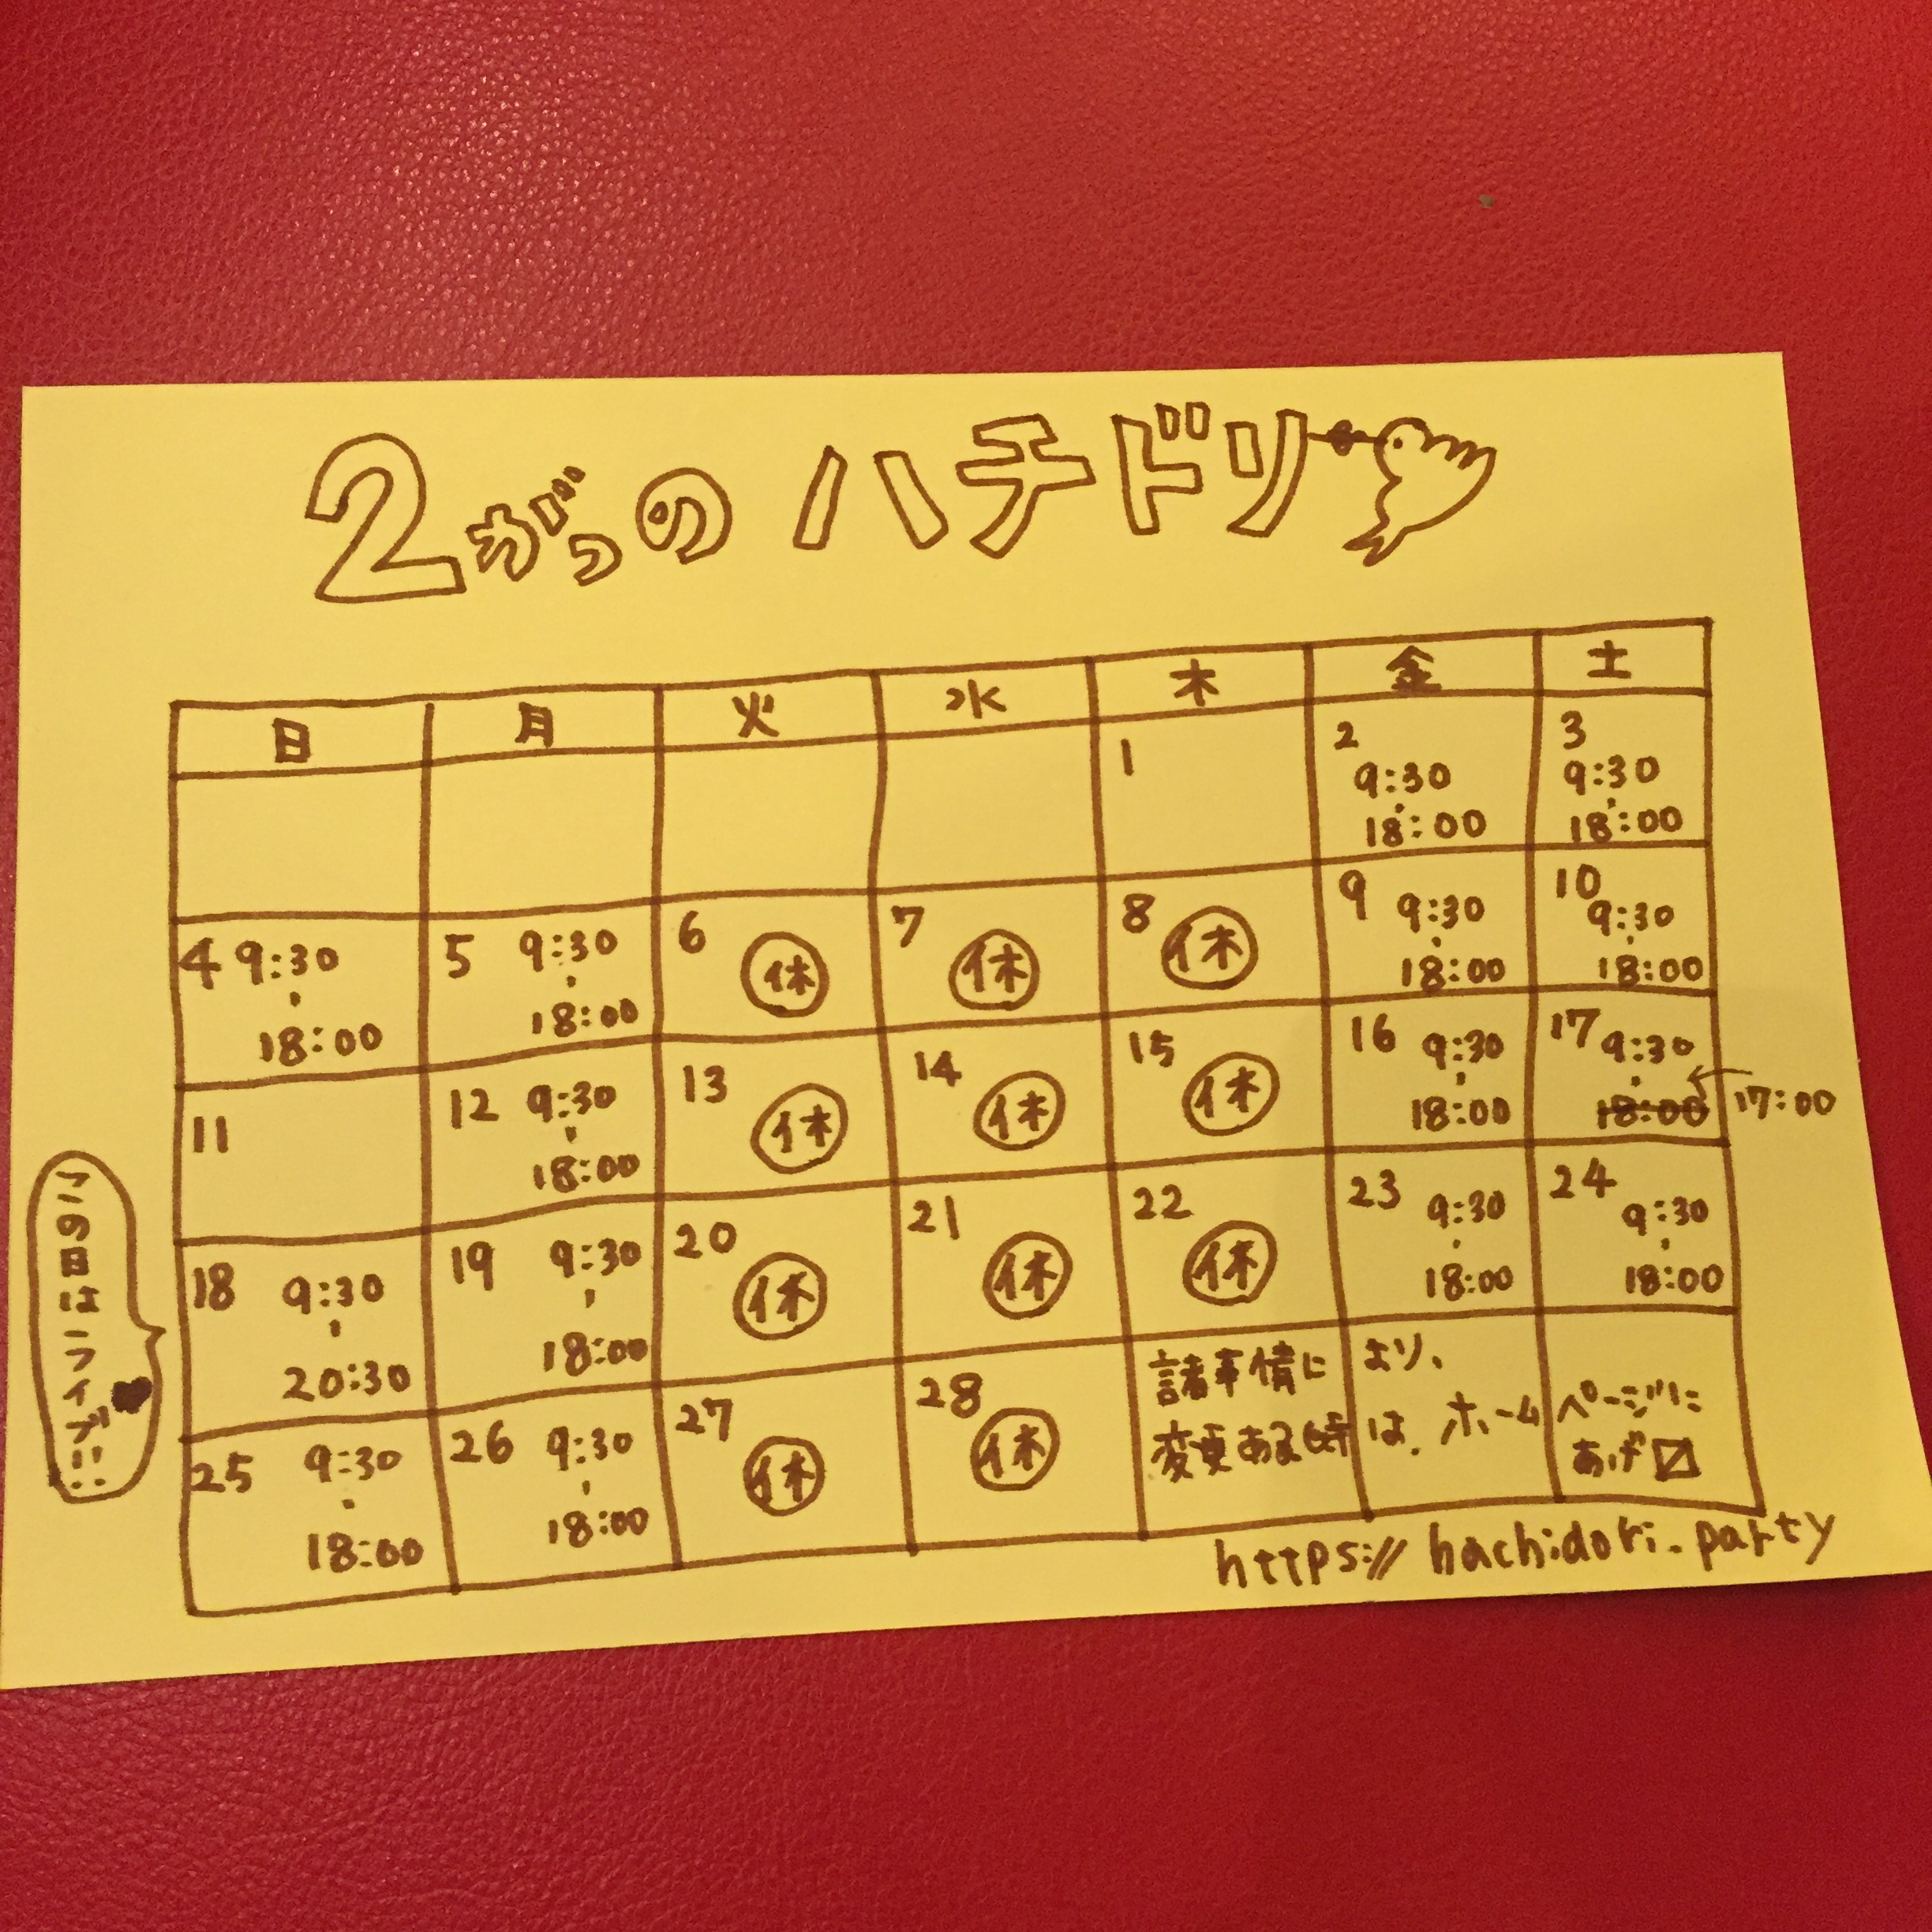 2がつのハチドリ
日 月 火 水 木 金 土
1 2 3
9:30 9:30
18:00 18:00
4 9:30 5 9:30 6 休 7 休 8 休 9 9:30 10 9:30
18:00 18:00 18:00 18:00
11 12 9:30 13 休 14 休 15 休 16 9:30 17 9:30
18:00 18:00 18:00 17:00
18 9:30 19 9:30 20 休 21 休 22 休 23 9:30 24 9:30
20:30 18:00 18:00 18:00
この日はライブ!!
25 9:30 26 9:30 27 休 28 休
18:00 18:00
諸事情により、
変更ある時は、ホームページに
あげ〼
https://hachidori.party